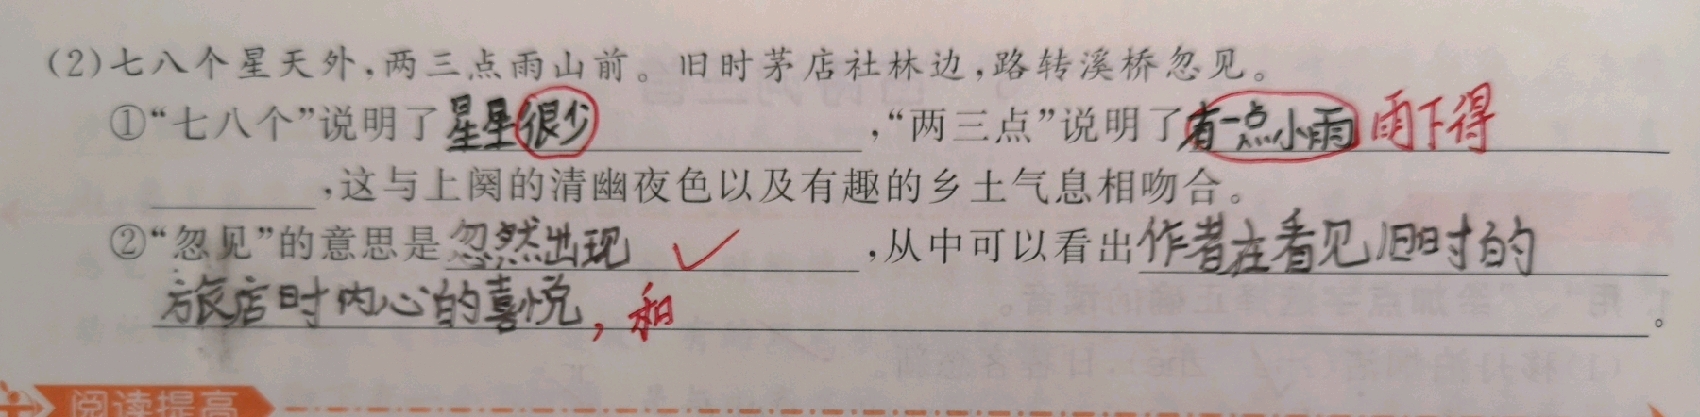 (2)七八个星天外,两三点雨山前。旧时茅店社林边,路转溪桥忽见。
①“七八个”说明了星星很少,“两三点”说明了有一点小雨雨下得
,这与上阕的清幽夜色以及有趣的乡土气息相吻合。
②“忽见”的意思是忽然出现,从中可以看出作者在看见旧时的
旅店时内心的喜悦,和。
阅读提高